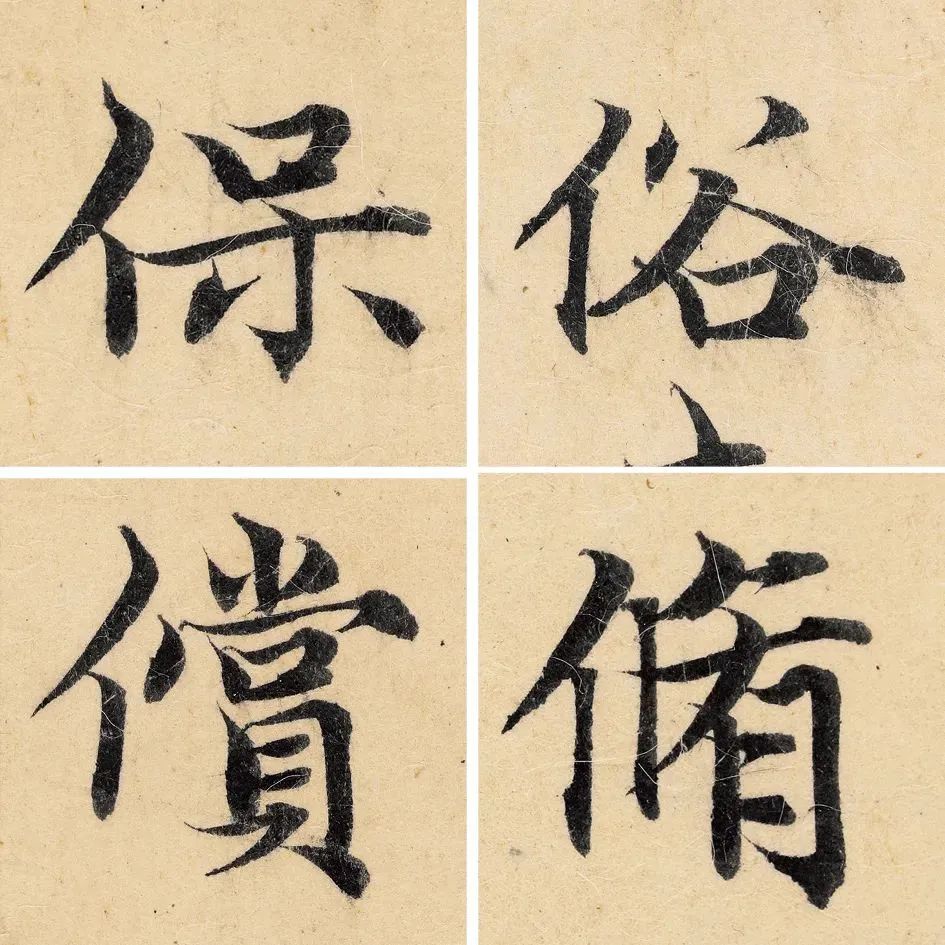 保 俗
償 脩